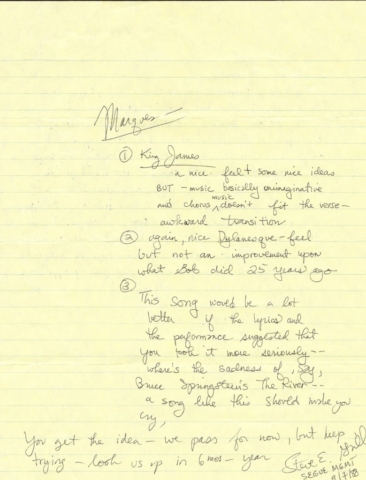 Marques —
① King James
a nice feel + some nice ideas
BUT - music basically unimaginative
and chorus music doesn't fit the verse -
awkward transition
② again, nice Dylanesque - feel
but not an improvement upon
what Bob did 25 years ago
③
This song would be a lot
better if the lyrics and
the performance suggested that
you took it more seriously --
where's the sadness of, say,
Bruce Springsteen's The River --
a song like this should make you
cry,
You get the idea - we pass for now, but keep
trying - look us up in 6 mos - year
Steve E.
MGMT